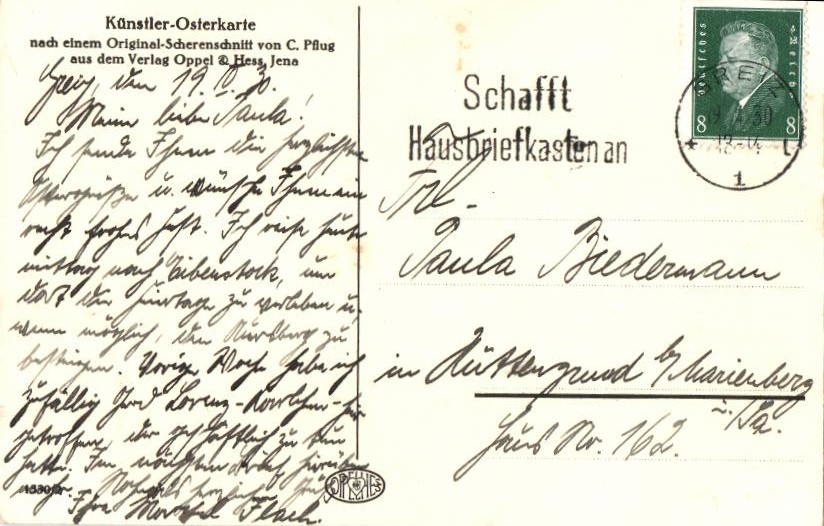 Künstler-Osterkarte
nach einem Original-Scherenschnitt von C. Pflug
aus dem Verlag Oppel & Hess, Jena
Greiz, den 19. IV. 30.
Meine liebe Paula!
Ich sende Ihnen die herzlichsten
Ostergrüße u. wünsche Ihnen ein
recht frohes Fest. Ich reise heute
mittag nach Eibenstock, um
dort die Feiertage zu verleben u.
wenn möglich, den Auersberg zu
besteigen. Vorige Woche habe ich
zufällig Lorenz-
getroffen, der geschäftlich zu tun
hatte. Im nächsten
Nochmals herzliche
Ihre Flach.
Schafft
Hausbriefkasten an
Deutsches Reich
8 8
GREIZ
1
Frl.
Paula Biedermann
in Hüttengrund b/Marienberg
i./Sa.
Haus No. 162.